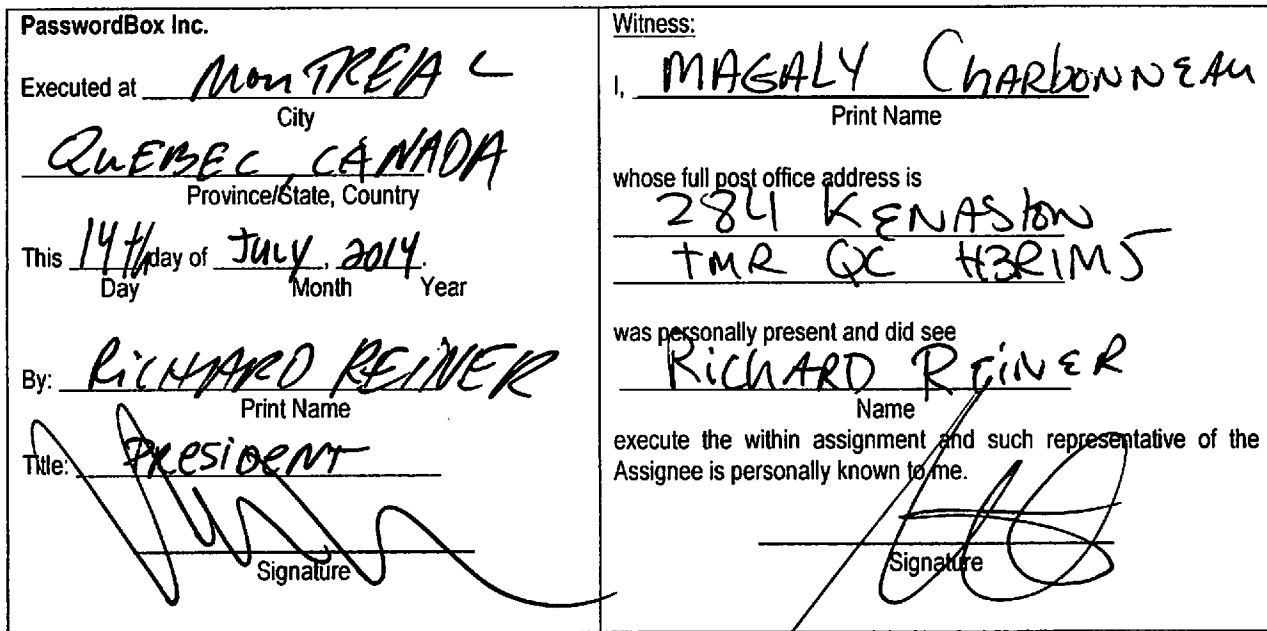 PasswordBox Inc.
Executed at MonTREAL
City
QuEBEC, CANADA
Province/State, Country
This 14th day of July, 2014.
Day Month Year
By: RiCHARD REINER
Print Name
Title: PResiDenT
Signature
Witness:
I, MAGALY ChARbONNEAu
Print Name
whose full post office address is
284 KENASton
TMR QC H3R1M5
was personally present and did see
RiChARD REiNER
Name
execute the within assignment and such representative of the
Assignee is personally known to me.
Signature